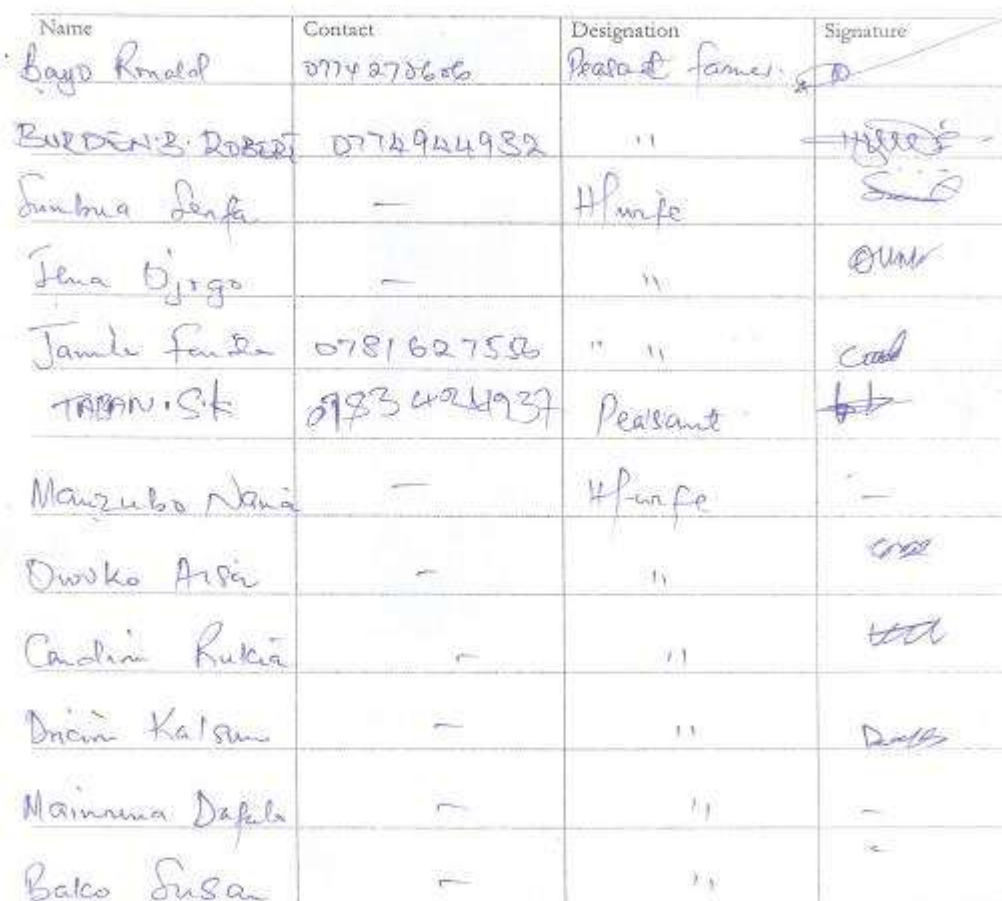 Name Contact Designation Signature
Bayo Ronald 0774270606 Peasant farmer.
BURDEN.B.ROBERT 0774944982 "
Sumbua - H/wife
Jema Ojogo - "
Jamila 0781627556 " "
TABAN.S.K 0783424937 Peasant
Manzubo Nama - H/wife -
Owoko Aisa - "
Rukia - "
Kalsum - "
Mainuna Dafala - " -
Bako Susan - " -